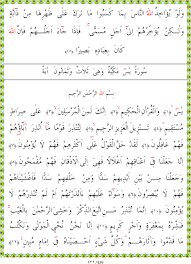 وَلَوْ يُؤَاخِذُ اللَّهُ النَّاسَ بِمَا كَسَبُوا مَا تَرَكَ عَلَى ظَهْرِهَا مِنْ دَابَّةٍ
وَلَكِنْ يُؤَخِّرُهُمْ إِلَى أَجَلٍ مُسَمًّى فَإِذَا جَاءَ أَجَلُهُمْ فَإِنَّ اللَّهَ
كَانَ بِعِبَادِهِ بَصِيرًا ﴿٤٥﴾
سُورَةُ يٰسٓ مَكِّيَّةٌ وَهِيَ ثَلَاثٌ وَثَمَانُونَ آيَةً
بِسْمِ اللَّهِ الرَّحْمَنِ الرَّحِيمِ
يٰسٓ ﴿١﴾ وَالْقُرْآنِ الْحَكِيمِ ﴿٢﴾ إِنَّكَ لَمِنَ الْمُرْسَلِينَ ﴿٣﴾ عَلَى صِرَاطٍ
مُسْتَقِيمٍ ﴿٤﴾ تَنْزِيلَ الْعَزِيزِ الرَّحِيمِ ﴿٥﴾ لِتُنْذِرَ قَوْمًا مَا أُنْذِرَ آبَاؤُهُمْ
فَهُمْ غَافِلُونَ ﴿٦﴾ لَقَدْ حَقَّ الْقَوْلُ عَلَى أَكْثَرِهِمْ فَهُمْ لَا يُؤْمِنُونَ ﴿٧﴾
إِنَّا جَعَلْنَا فِي أَعْنَاقِهِمْ أَغْلَالًا فَهِيَ إِلَى الْأَذْقَانِ فَهُمْ مُقْمَحُونَ ﴿٨﴾
وَجَعَلْنَا مِنْ بَيْنِ أَيْدِيهِمْ سَدًّا وَمِنْ خَلْفِهِمْ سَدًّا فَأَغْشَيْنَاهُمْ فَهُمْ
لَا يُبْصِرُونَ ﴿٩﴾ وَسَوَاءٌ عَلَيْهِمْ أَأَنْذَرْتَهُمْ أَمْ لَمْ تُنْذِرْهُمْ لَا يُؤْمِنُونَ
﴿١٠﴾ إِنَّمَا تُنْذِرُ مَنِ اتَّبَعَ الذِّكْرَ وَخَشِيَ الرَّحْمَنَ بِالْغَيْبِ
فَبَشِّرْهُ بِمَغْفِرَةٍ وَأَجْرٍ كَرِيمٍ ﴿١١﴾ إِنَّا نَحْنُ نُحْيِي الْمَوْتَى وَنَكْتُبُ
مَا قَدَّمُوا وَآثَارَهُمْ وَكُلَّ شَيْءٍ أَحْصَيْنَاهُ فِي إِمَامٍ مُبِينٍ ﴿١٢﴾